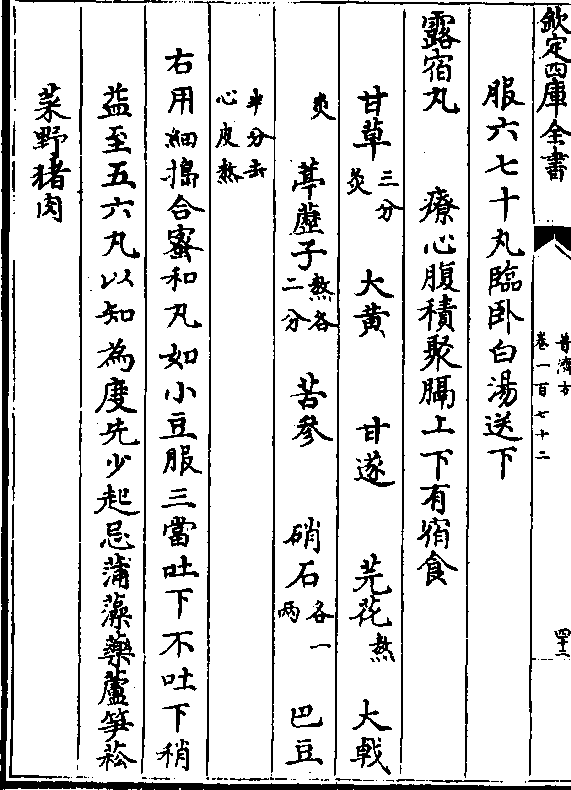 欽定四庫全書
普濟方
卷一百七十二
服六七十丸臨卧白湯送下
露宿丸 療心腹積聚膈上下有宿食
甘草三分炙 大黄 甘遂 芫花熬 大戟
炙 葶藶子熬各二分 苦參 硝石各一兩 巴豆
半分去心皮熬
右用細擣合蜜和丸如小豆服三當吐下不吐下稍
益至五六丸以知為度先少起忌蒲藻藥蘆笋菘
菜野猪肉